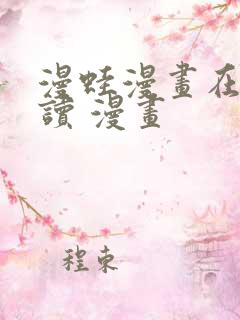 漫蛙漫畫在
讀 漫畫
程東